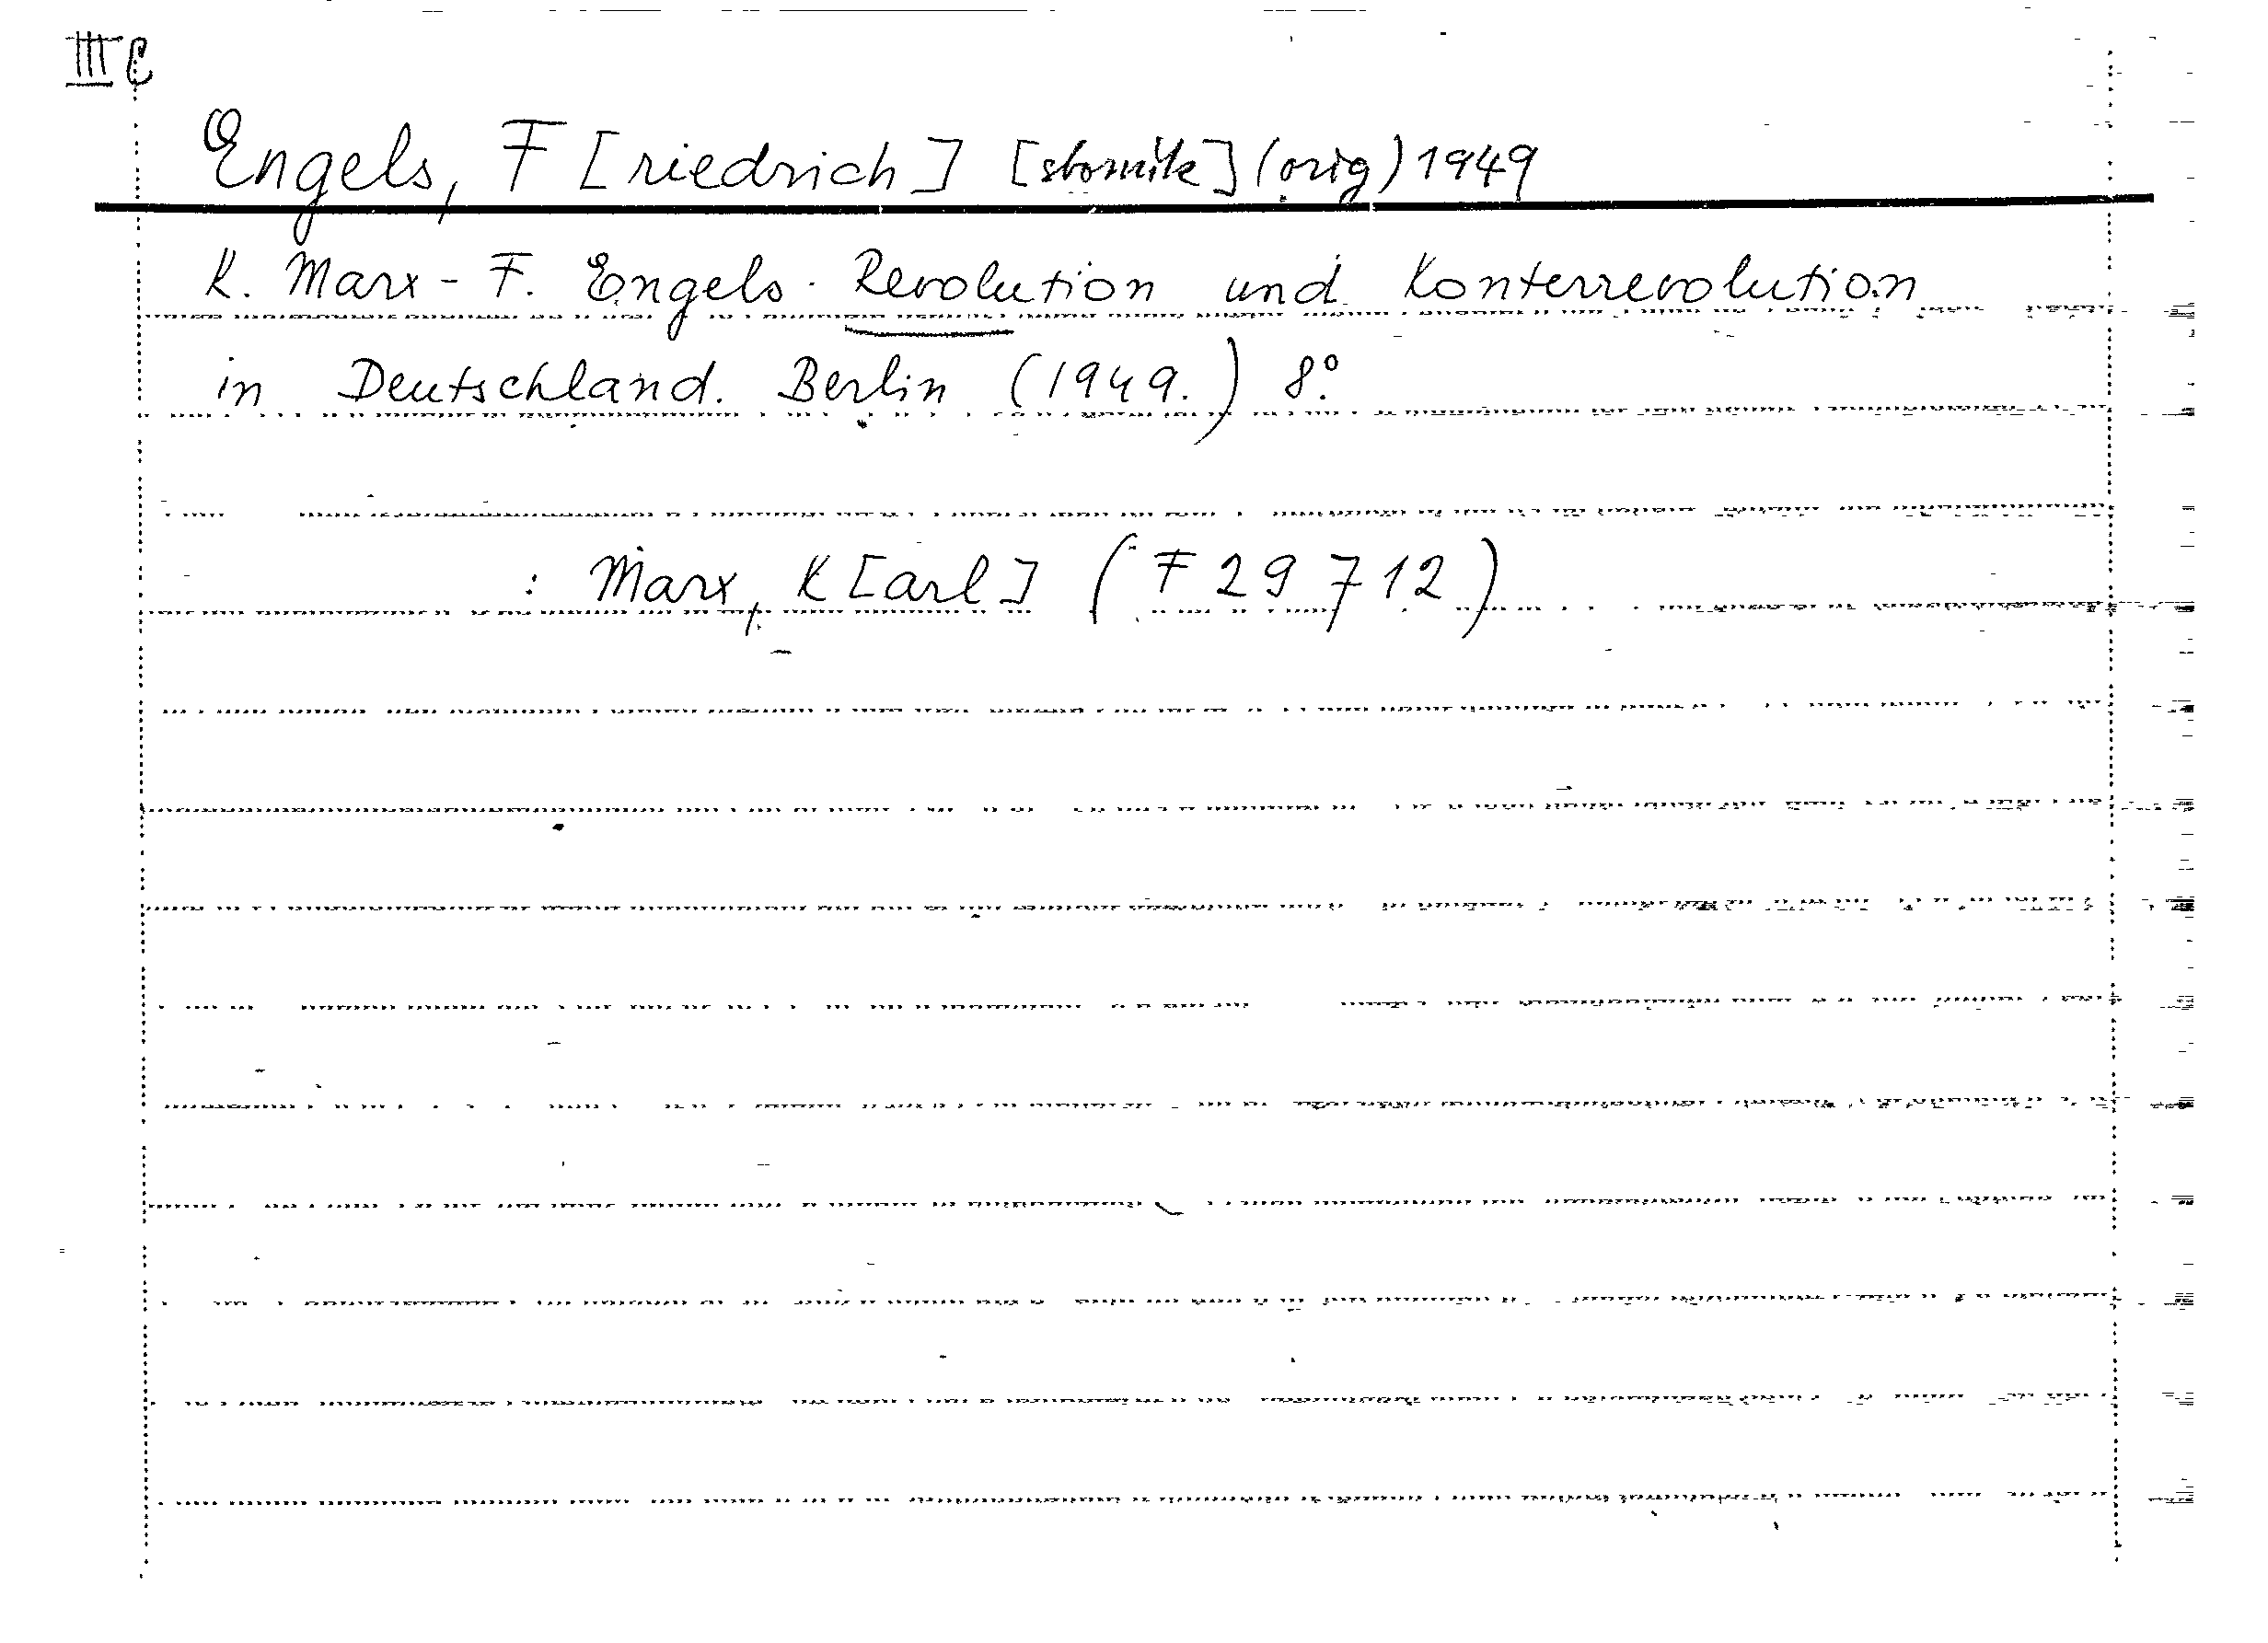 III C
Engels, F[riedrich] [sbornik] (orig) 1949
K. Marx - F. Engels. Revolution und Konterrevolution
in Deutschland. Berlin (1949.) 8°.
: Marx, K[arl] (F 29 712)